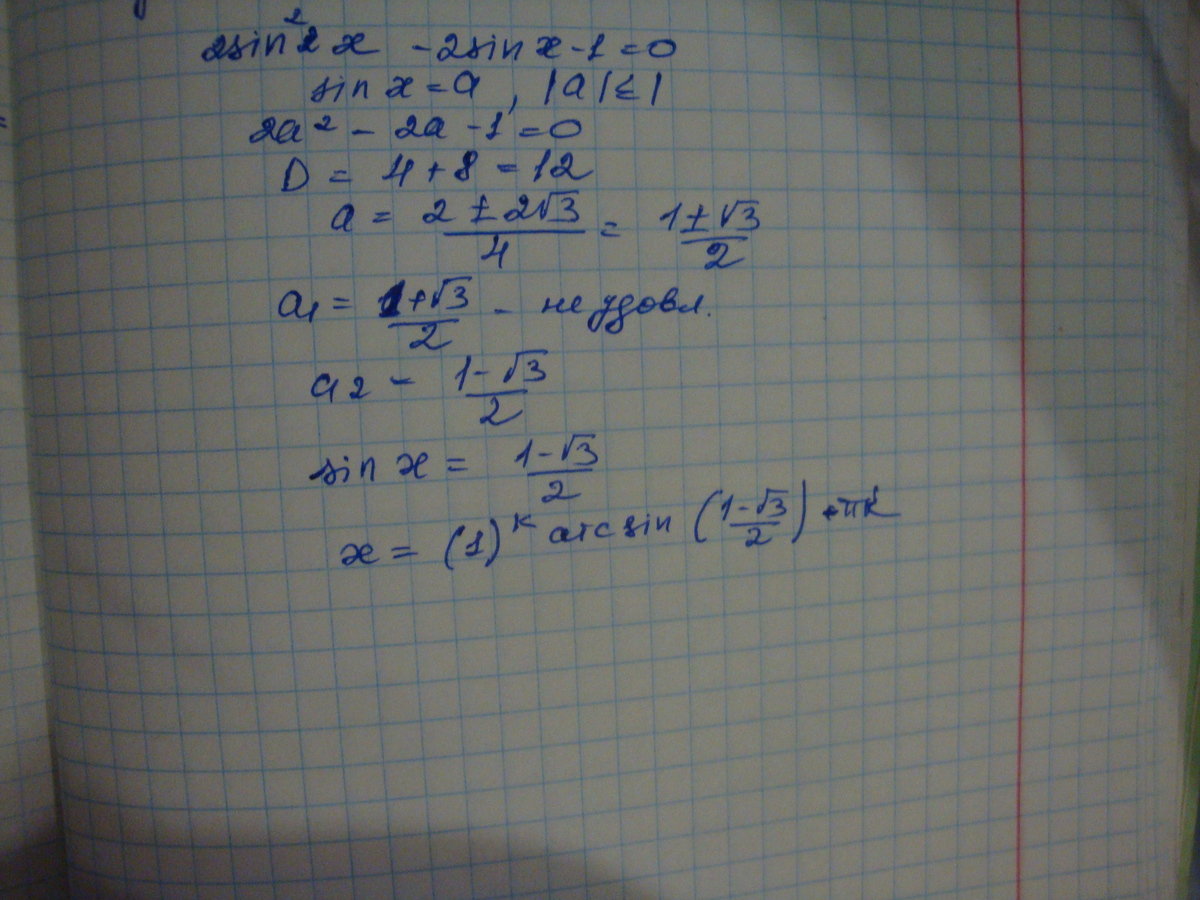 2sin² x - 2sin x - 1 = 0
sin x = a , |a| ≤ 1
2a² - 2a - 1 = 0
D = 4 + 8 = 12
a = (2 ± 2√3)/4 = (1 ± √3)/2
a₁ = (1 + √3)/2 - не удовл.
a₂ - (1 - √3)/2
sin x = (1 - √3)/2
x = (1)ᵏ arcsin ((1 - √3)/2) + πk